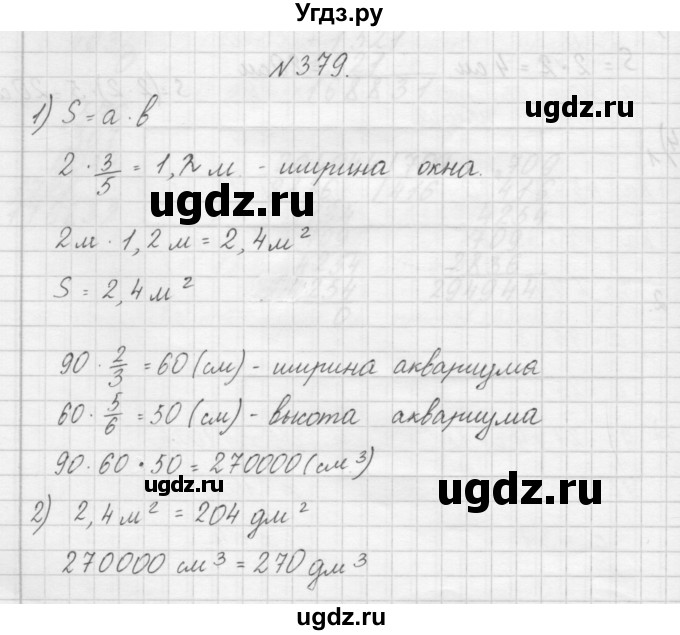 Угдз.ру
№379.
1) S = a · b
2 · 3/5 = 1,2 м - ширина окна.
ugdz.ru
2м · 1,2 м = 2,4 м²
S = 2,4 м²
ugdz.ru
90 · 2/3 = 60 (см) - ширина аквариума
60 · 5/6 = 50 (см) - высота аквариума
90 · 60 · 50 = 270000 (см³)
ugdz.ru
ugdz.ru
2) 2,4 м² = 204 дм²
270000 см³ = 270 дм³
ugdz.ru